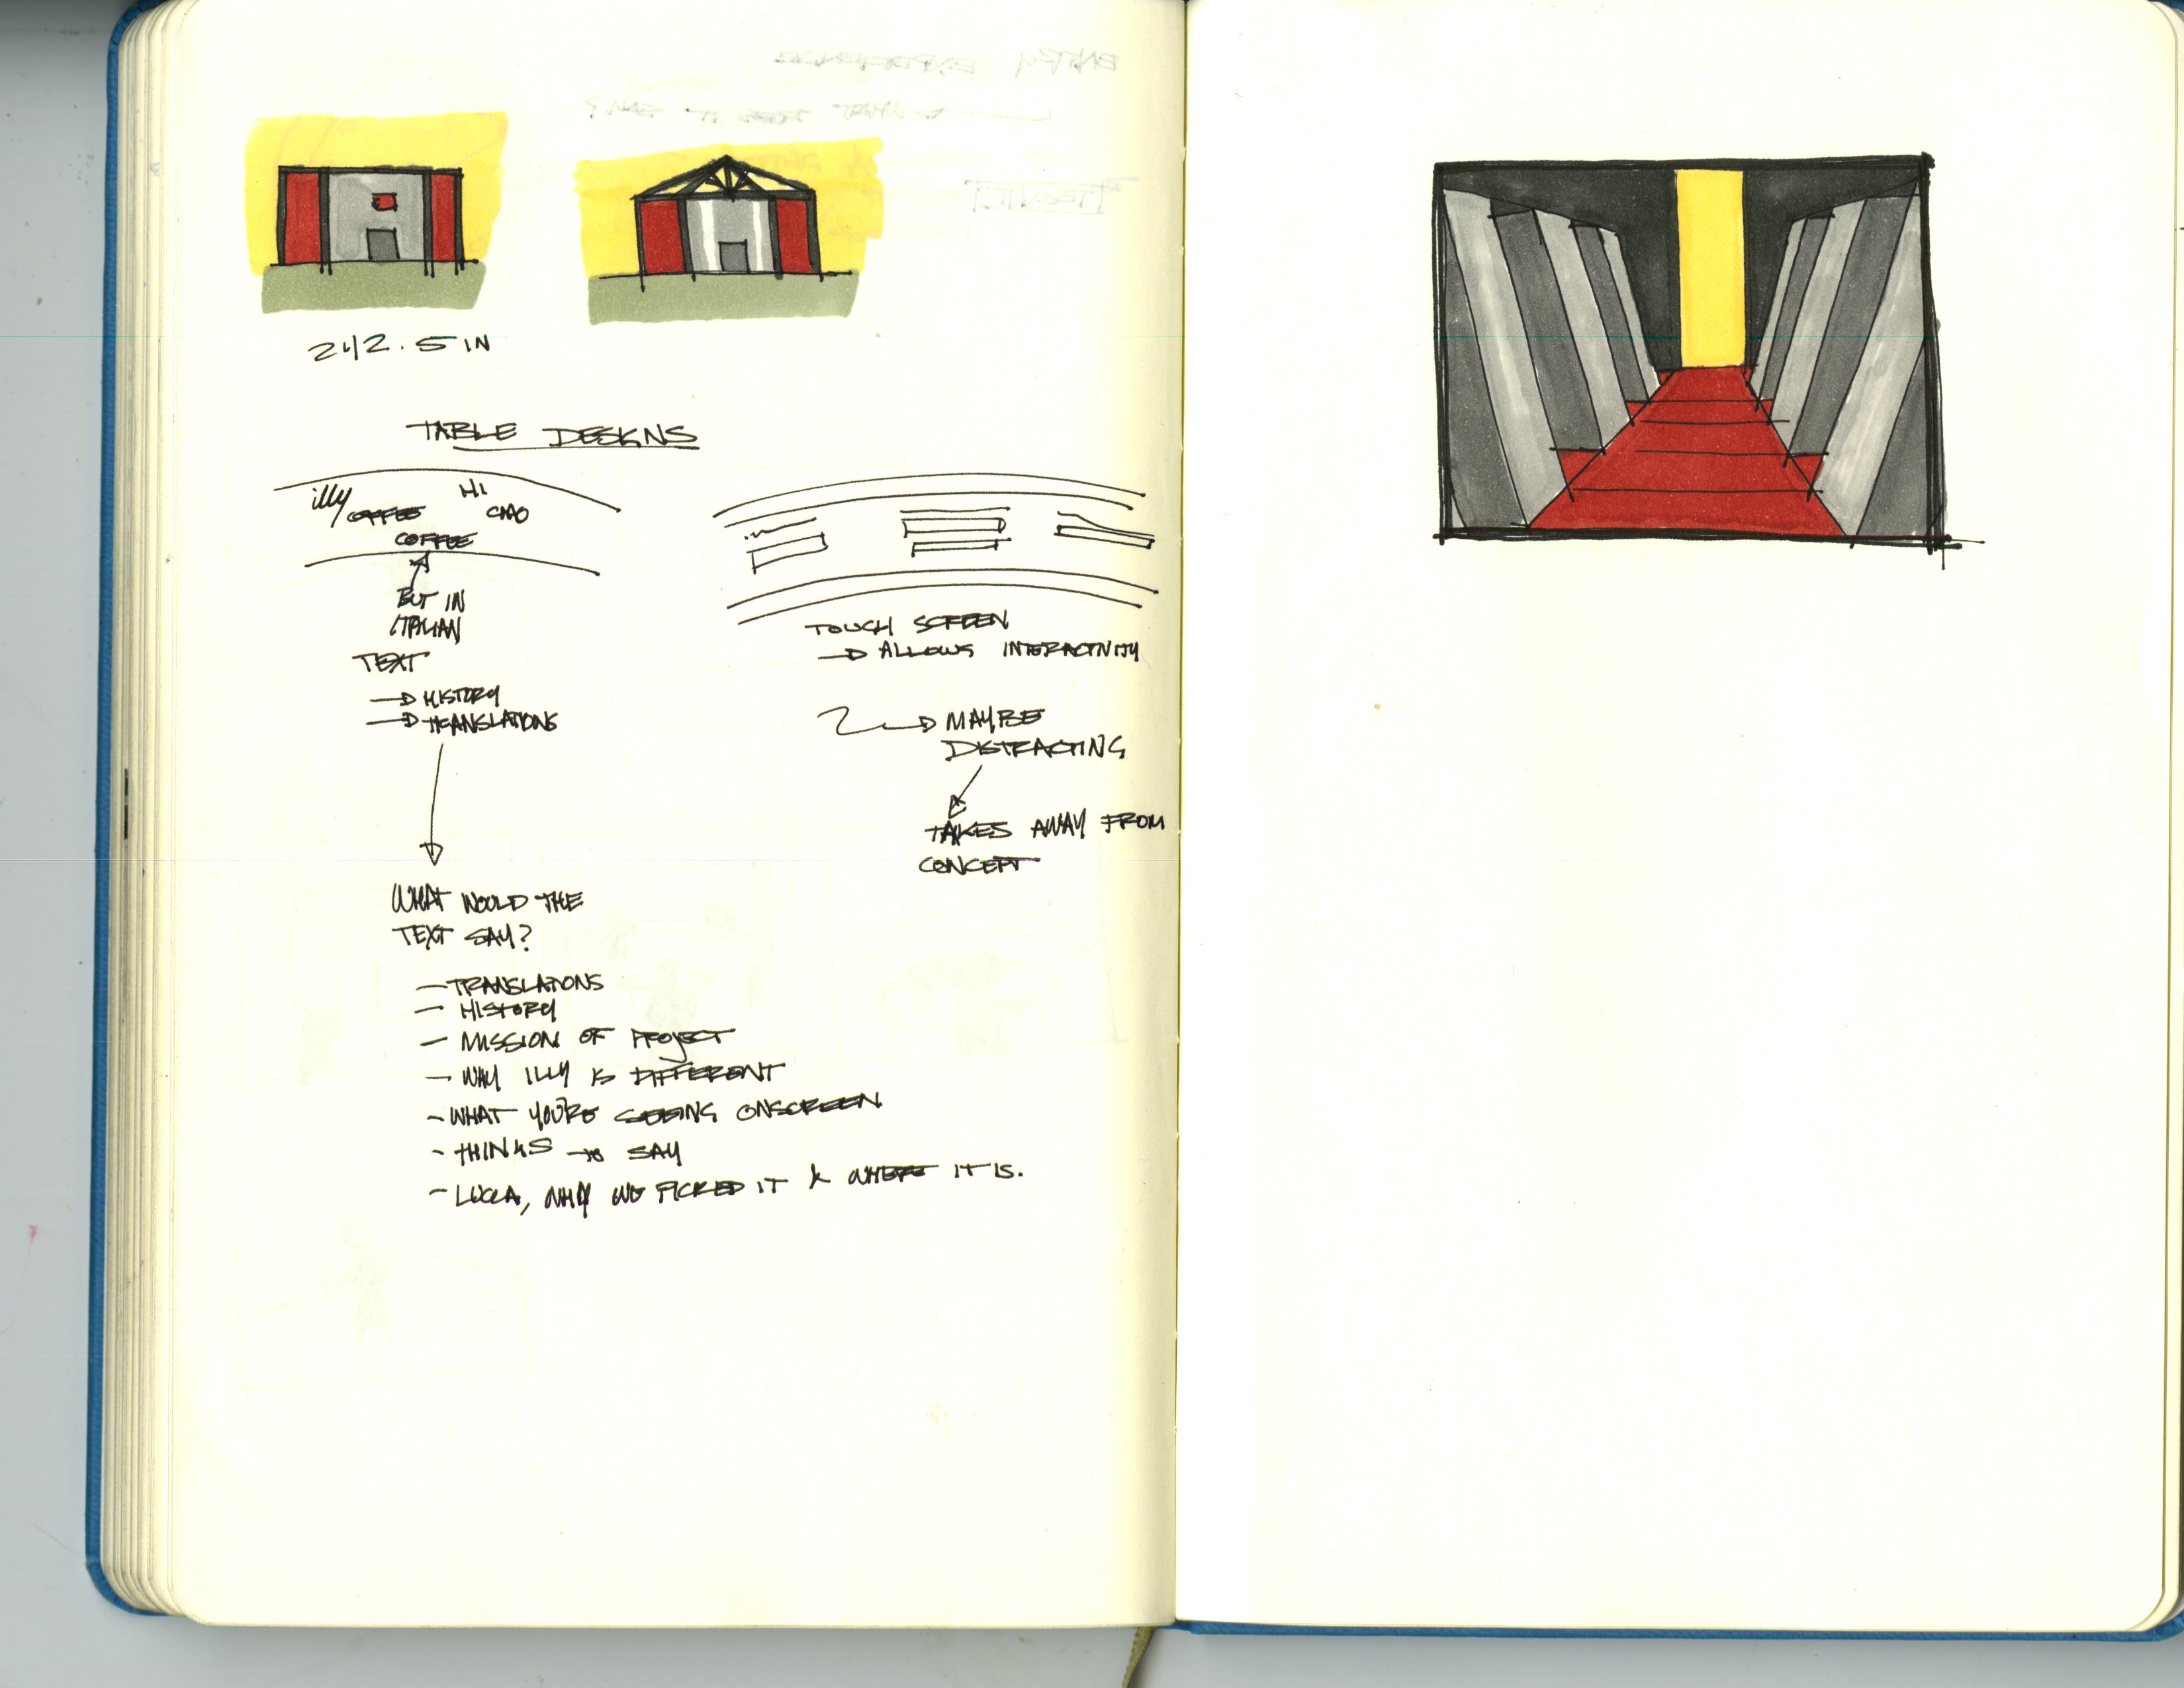 242.5 IN
TABLE DESIGNS
illy
HI
COFFEE
CIAO
COFFEE
BUT IN
ITALIAN
TEXT
HISTORY
TRANSLATIONS
WHAT WOULD THE
TEXT SAY?
- TRANSLATIONS
- HISTORY
- MISSION OF PROJECT
- WHY ILLY IS DIFFERENT
- WHAT YOU'RE SEEING ONSCREEN
- THINGS TO SAY
- LUCCA, WHY WE PICKED IT & WHERE IT IS.
TOUCH SCREEN
ALLOWS INTERACTIVITY
MAYBE
DISTRACTING
TAKES AWAY FROM
CONCEPT
ENTRY EXPERIENCE
WHAT DOES IT SAY?